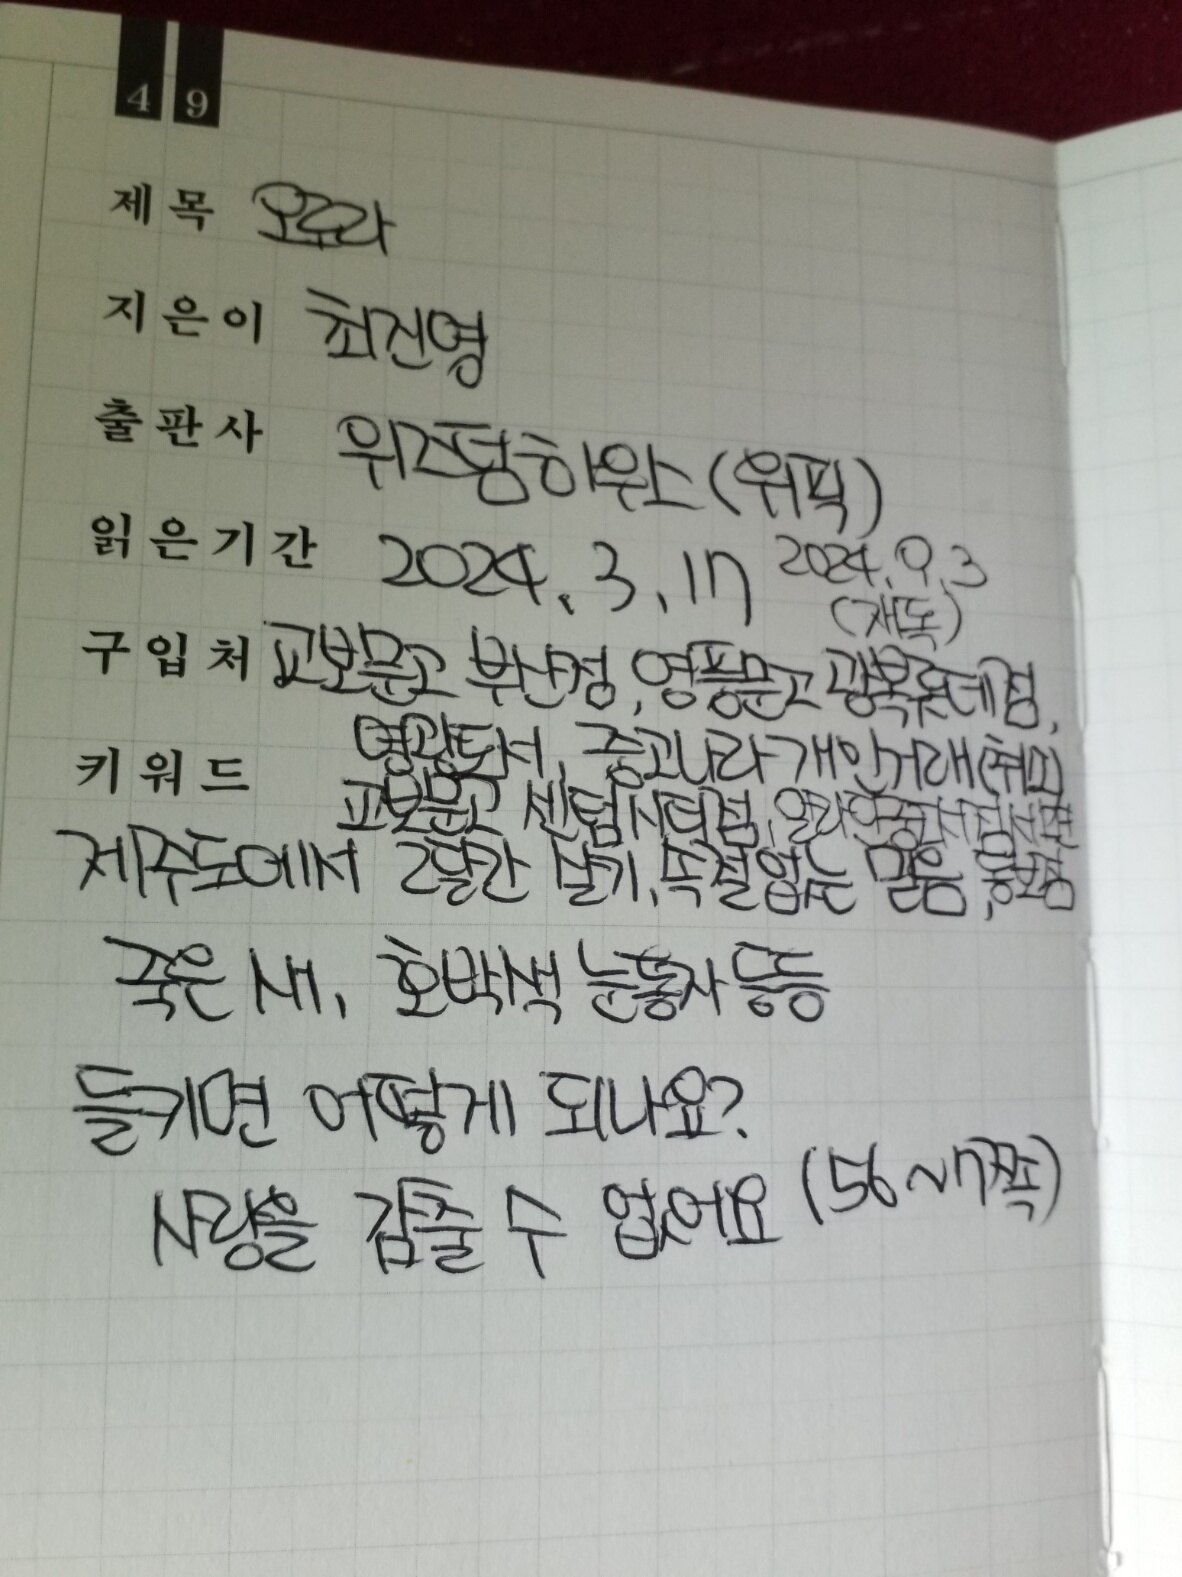 4 9
제목 오로라
지은이 최진영
출판사 위즈덤하우스 (위픽)
읽은기간 2024. 3. 17 2024. 9. 3
(재독)
구입처 교보문고 부산점, 영풍문고 광복롯데점,
영광도서, 중고나라 개인거래(취미)
키워드
교보문고 센텀시티점, 알라딘중고서점서면
제주도에서 2달간 살기, 속절없는 믿음, 동보점
죽은 새, 호박색 눈동자 등등
들키면 어떻게 되나요?
사랑을 감출 수 없어요 (56~7쪽)